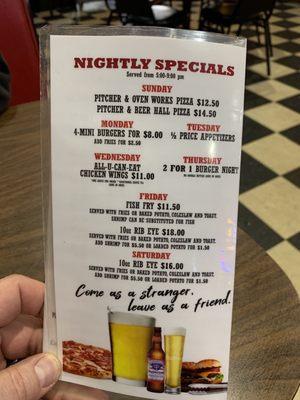 NIGHTLY SPECIALS
Served from 5:00-9:00 pm
SUNDAY
PITCHER & OVEN WORKS PIZZA $12.50
PITCHER & BEER HALL PIZZA $14.50
MONDAY
4-MINI BURGERS FOR $8.00
ADD FRIES FOR $2.50
TUESDAY
½ PRICE APPETIZERS
WEDNESDAY
ALL-U-CAN-EAT
CHICKEN WINGS $11.00
THURSDAY
2 FOR 1 BURGER NIGHT
FRIDAY
FISH FRY $11.50
SERVED WITH FRIES OR BAKED POTATO, COLESLAW AND TOAST.
SHRIMP CAN BE SUBSTITUTED FOR FISH
10oz RIB EYE $18.00
SERVED WITH FRIES OR BAKED POTATO, COLESLAW AND TOAST
ADD SHRIMP FOR $5.50 OR LOADED POTATO FOR $1.50
SATURDAY
10oz RIB EYE $16.00
SERVED WITH FRIES OR BAKED POTATO, COLESLAW AND TOAST.
ADD SHRIMP FOR $5.50 OR LOADED POTATO FOR $1.50
Come as a stranger,
leave as a friend.